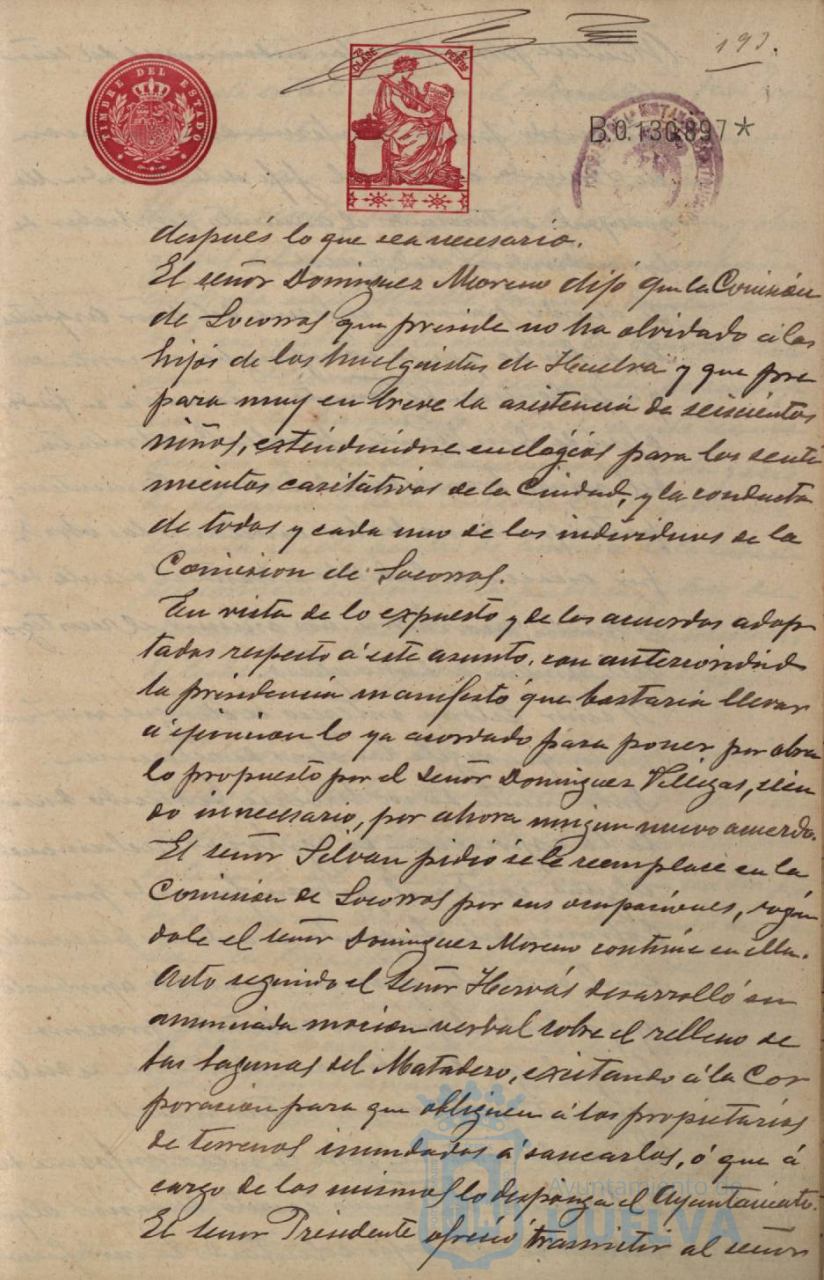 193.
TIMBRE DEL ESTADO
7ª CLASE
PESETAS
B.0.130.897*
después lo que sea necesario.
El señor Dominguez Moreno dijó que la Comisión
de Socorros que preside no ha olvidado á los
hijos de los huelguistas de Huelva y que pre
para muy en breve la asistencia de seiscientos
niños, estendiendose en elogios para los senti
mientos caritativos de la Ciudad, y la conducta
de todos y cada uno de los individuos de la
Comision de Socorros.
En vista de lo expuesto y de los acuerdos adop
tados respecto á este asunto, con anterioridad
la presidencia manifestó que bastaria llevar
á ejecucion lo ya acordado para poner por obra
lo propuesto por el Señor Dominguez Villegas, sien
do innecesario, por ahora ningun nuevo acuerdo.
El señor Silvan pidió se le reemplace en la
Comision de Socorros por sus ocupaciones, rogán
dole el señor Dominguez Moreno continúe en ella.
Acto seguido el Señor Hervás desarrolló su
anunciada mocion verbal sobre el relleno de
las lagunas del Matadero, excitando á la Cor
poracion para que obliguen á los propietarios
de terrenos inundados á sanearlos, ó que á
cargo de los mismos lo desponga el Ayuntamiento.
El señor Presidente ofreció trasmitir al señor
Ayuntamiento de
HUELVA